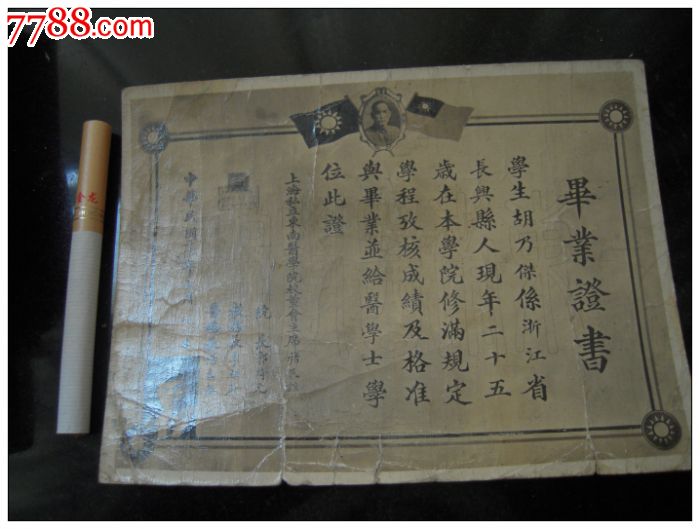 7788.com
畢業證書
學生胡乃傑係浙江省
長興縣人現年二十五
歲在本學院修滿規定
學程攷核成績及格准
與畢業並給醫學士學
位此證
上海私立東南醫學院校董會主席
院長郭琦元
中華民國
金龙